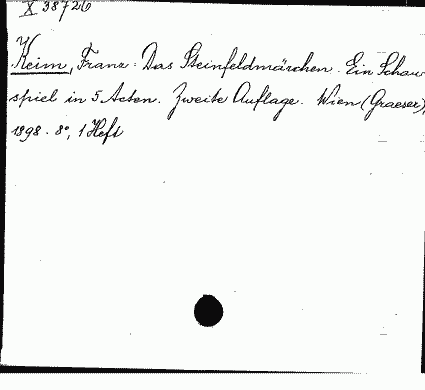 X 38726
Keim, Franz: Das Steinfeldmärchen. Ein Schau
spiel in 5 Acten. Zweite Auflage. Wien (Graeser),
1898. 8°, 1 Heft